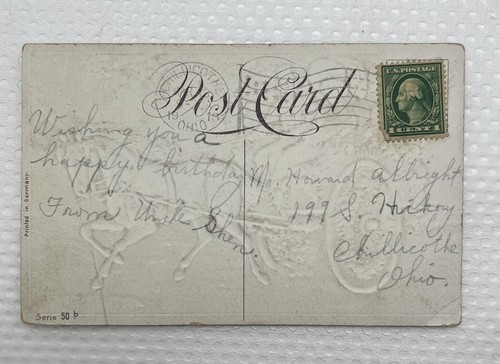 Post Card
U.S. POSTAGE
1 CENT 1
CHILLICOTHE
OHIO
Wishing you a
happy birthday
From Uncle Shen.
Mr. Howard Albright
199 S. Hickory
Chillicothe
Ohio.
Printed in Germany
Serie 50 b